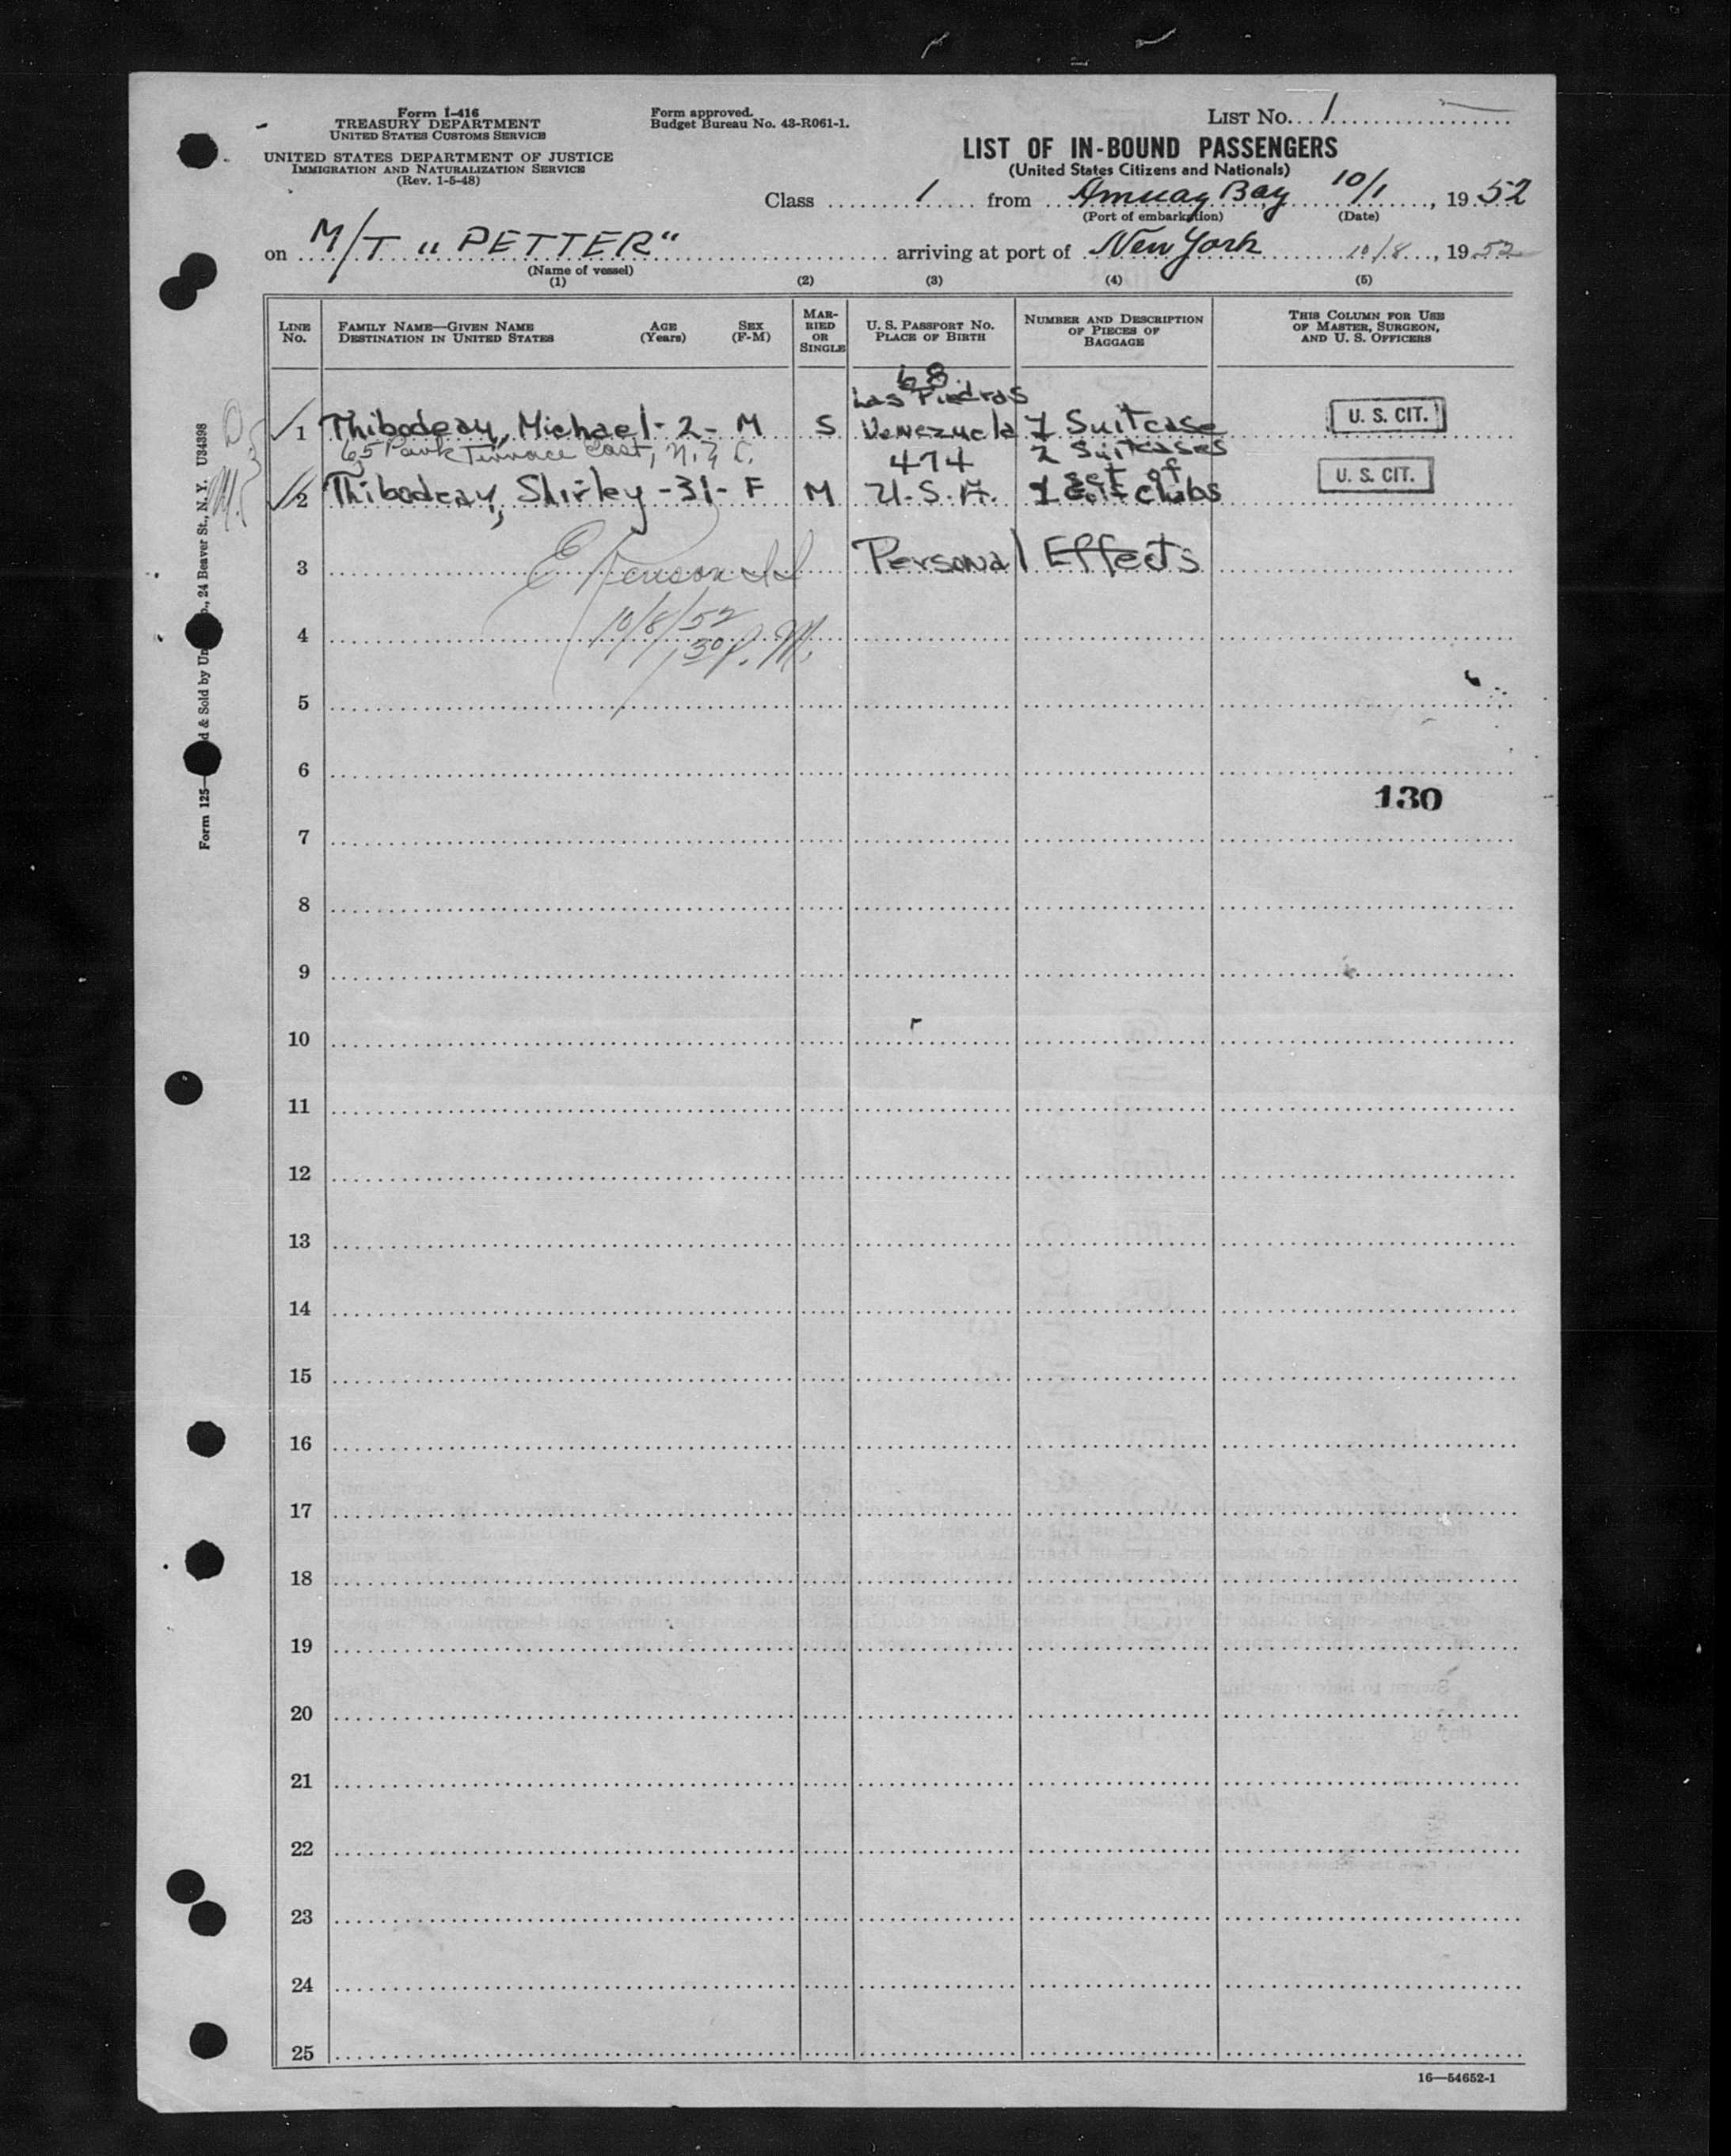 Form I-416
TREASURY DEPARTMENT
UNITED STATES CUSTOMS SERVICE
UNITED STATES DEPARTMENT OF JUSTICE
IMMIGRATION AND NATURALIZATION SERVICE
(Rev. 1-5-48)
Form approved.
Budget Bureau No. 43-R061-1.
LIST NO. 1
LIST OF IN-BOUND PASSENGERS
(United States Citizens and Nationals)
Class 1 from Amuay Bay 10/1, 1952
(Port of embarkation) (Date)
on M/T "PETTER" arriving at port of New York 10/8, 1952
(Name of vessel)
(1) (2) (3) (4) (5)
LINE NO.
FAMILY NAME—GIVEN NAME AGE SEX
DESTINATION IN UNITED STATES (Years) (F-M)
MARRIED OR SINGLE
U. S. PASSPORT NO.
PLACE OF BIRTH
NUMBER AND DESCRIPTION
OF PIECES OF
BAGGAGE
THIS COLUMN FOR USE
OF MASTER, SURGEON,
AND U. S. OFFICERS
68
Las Piedras
1 Thibodeau, Michael - 2 - M S Venezuela 1 Suitcase U. S. CIT.
65 Park Terrace East, N.Y.C. 474 2 Suitcases
set of
2 Thibodeau, Shirley - 31 - F M U.S.A. 1 Golf clubs U. S. CIT.
3 Personal Effects
10/8/52
4
P.M.
5
6
130
7
8
9
10
11
12
13
14
15
16
17
18
19
20
21
22
23
24
25
16—54652-1
Form 125
d & Sold by Un
24 Beaver St., N. Y. U34398